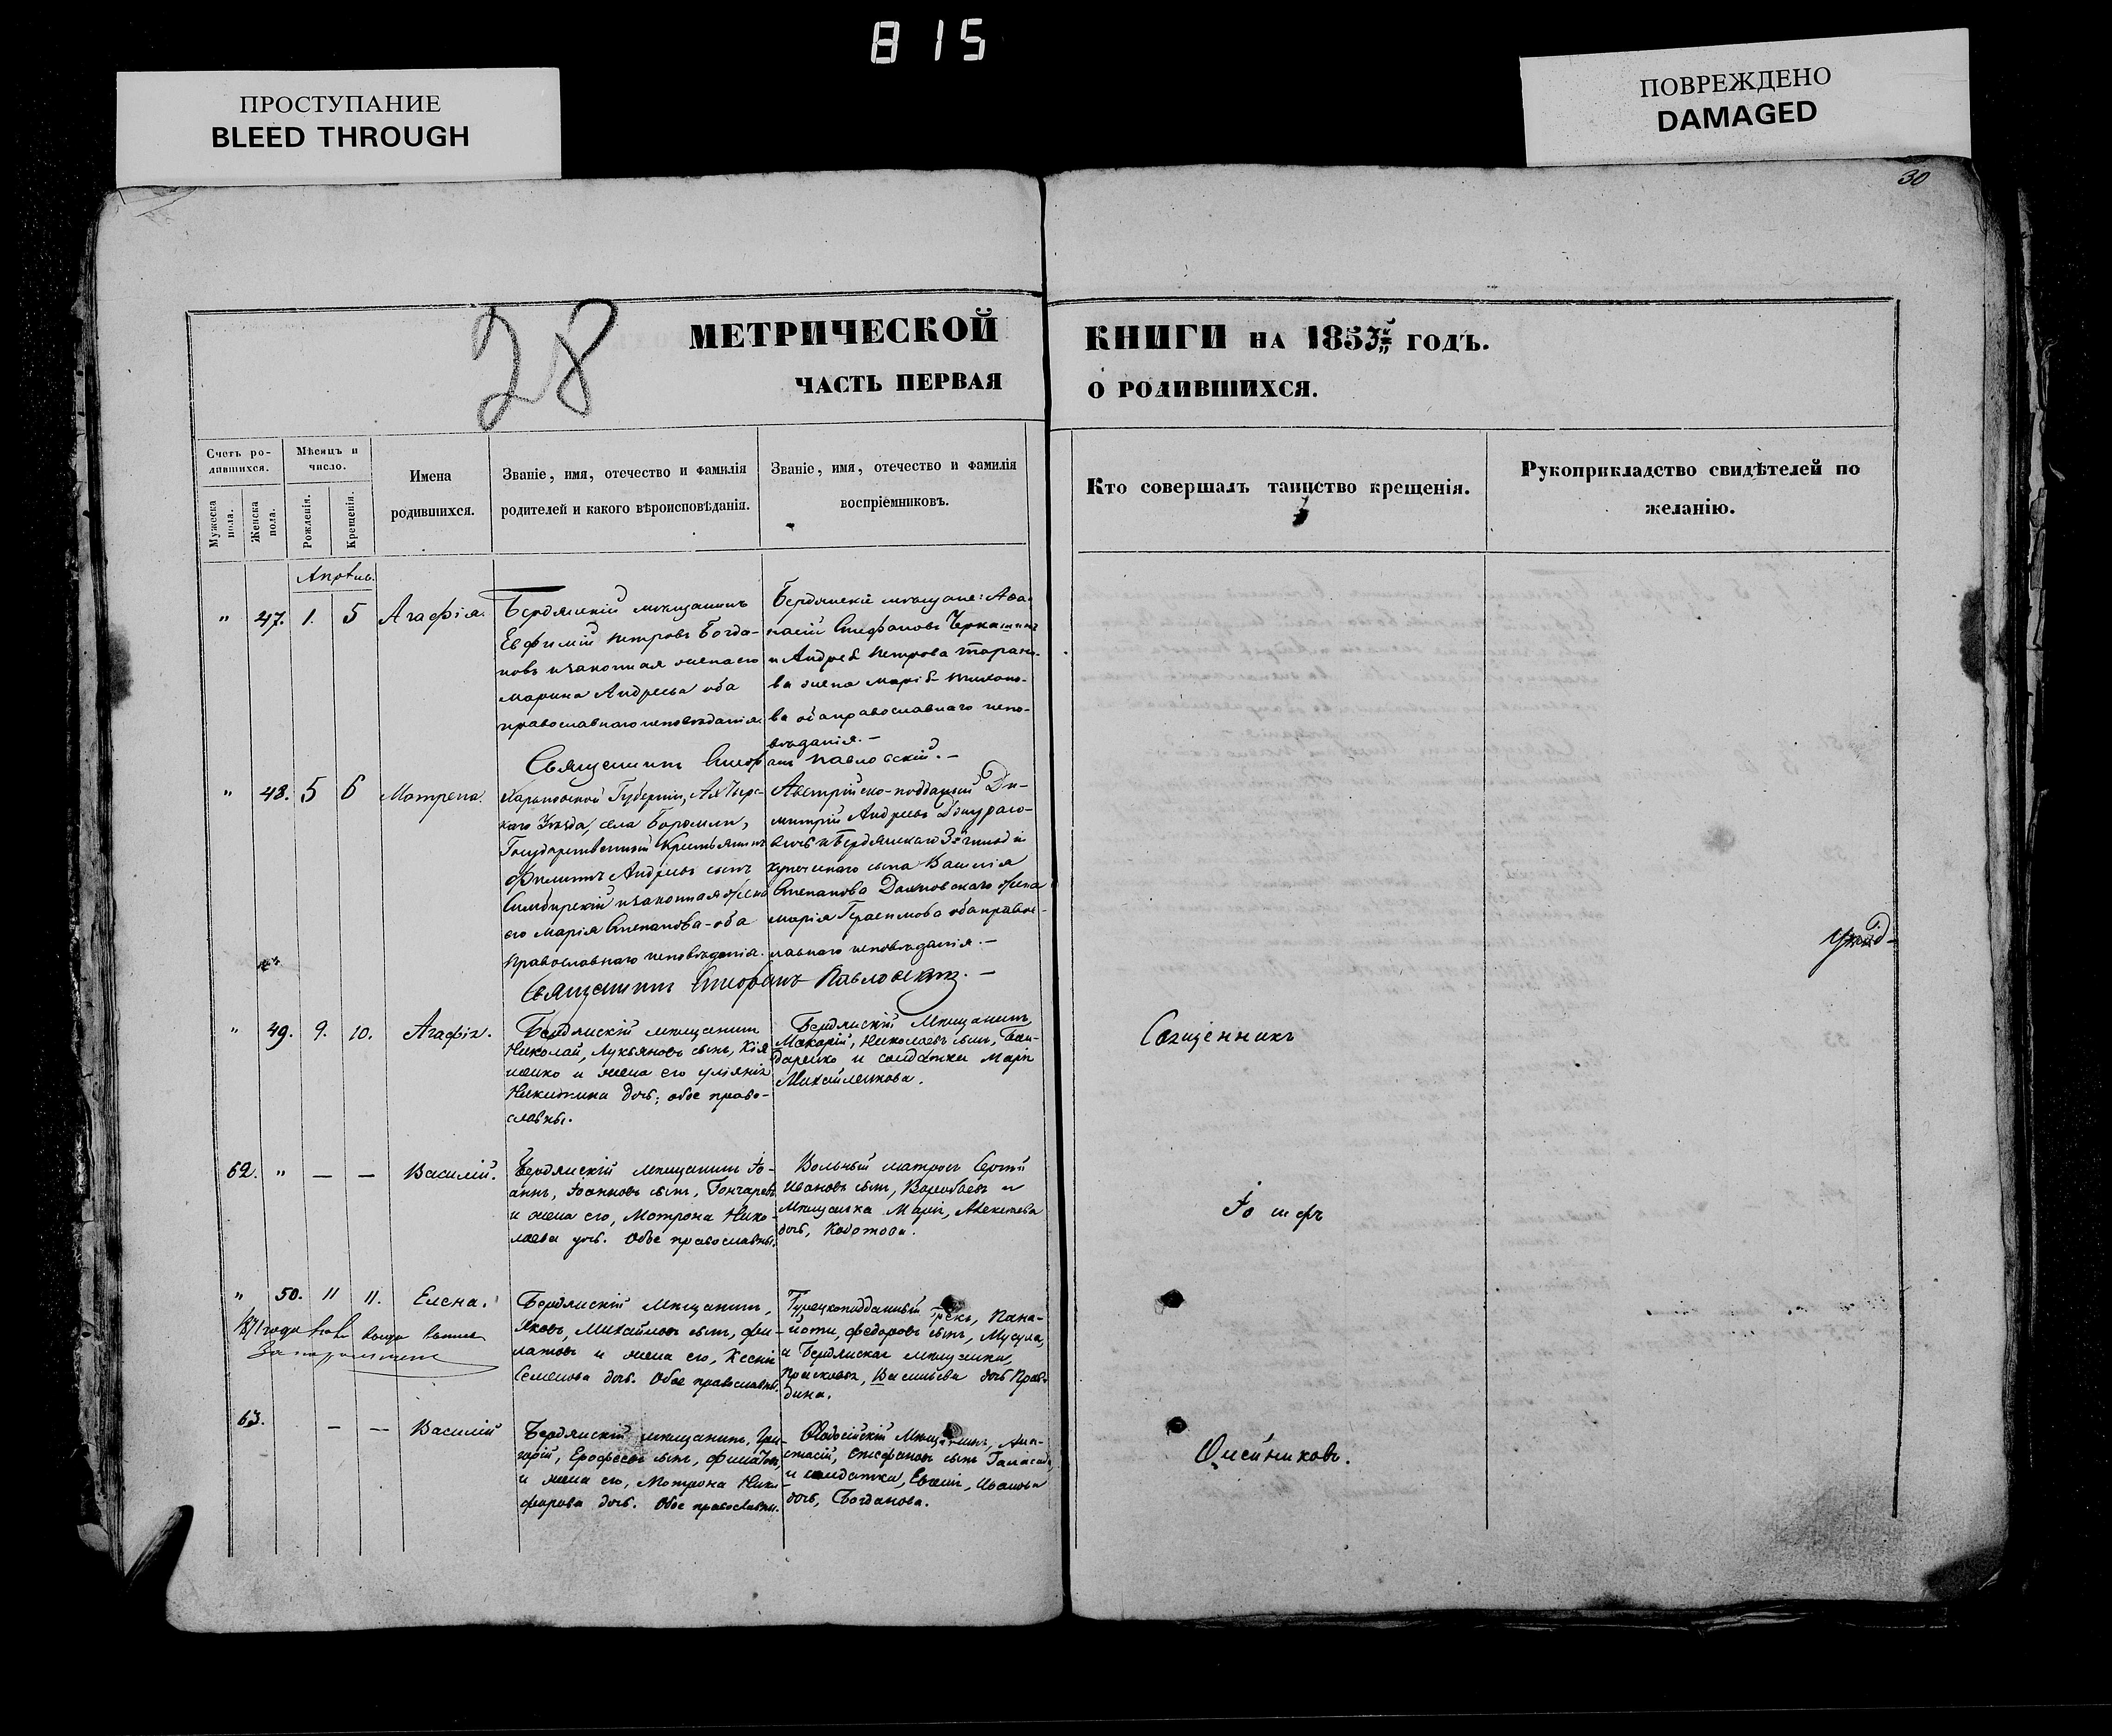 815
ПРОСТУПАНИЕ
BLEED THROUGH
ПОВРЕЖДЕНО
DAMAGED
30
28
МЕТРИЧЕСКОЙ
ЧАСТЬ ПЕРВАЯ
КНИГИ НА 1853й ГОДЪ.
О РОДИВШИХСЯ.
Счетъ ро-
дившихся.
Мужеска
пола.
Женска
пола.
Мѣсяцъ и
число.
Рожденія.
Крещенія.
Имена
родившихся.
Званіе, имя, отечество и фамилія
родителей и какого вѣроисповѣданія.
Званіе, имя, отечество и фамилія
воспріемниковъ.
Кто совершалъ таинство крещенія.
Рукоприкладство свидѣтелей по
желанію.
" 47. 1. 5 Агафія.
Бердянскій мѣщанинъ
Евфимій Петровъ Богда-
новъ и законная жена его
Марина Андреева оба
православнаго исповѣданія.
Бердянскіе мѣщане: Аѳа-
насій Стефановъ
и Андрея Петрова Таран
ва жена Марія
ва оба православнаго испо-
вѣданія.-
Священникъ Стефанъ Павловскій.-
" 48. 5 6 Матрена.
Харьковской Губерніи,
каго Уѣзда, села Боромли,
Государственный Крестьянинъ
Филиппъ Андреевъ сынъ
Симбирскій и законная жена
его Марія Степанова - оба
православнаго исповѣданія.
Австрійско-подданый Ди-
митрій Андреевъ
и Бердянскаго 3й гильдіи
купеческаго сына Василія
Степанова жена
Марія Герасимова оба правос-
лавнаго исповѣданія.-
Священникъ Стефанъ Павловскій.-
" 49. 9. 10. Агафія.
Бердянскій мѣщанинъ
Николай, Лукьяновъ сынъ, Кія
шко и жена его Уліянія
Никитина дочь; обое право-
славны.
Бердянскій Мѣщанинъ
Макарій, Николаевъ сынъ, Бон-
даренко и солдатка Марія
Михайленкова.
Священникъ
62. " - - Василій.
Бердянскій мѣщанинъ Іо-
аннъ, Іоанновъ сынъ, Гончаровъ
и жена его, Матрона Нико-
лаева дочь. Обое православны.
Вольный матросъ Сергій
Ивановъ сынъ, Воробьевъ и
Мѣщанка Марія, Алексѣева
дочь,
Іосифъ
" 50. 11 11. Елена.
Бердянскій мѣщанинъ,
Яковъ, Михайловъ сынъ, Фи-
латовъ и жена его, Ксенія
Семенова дочь. Обое православны.
Турецкоподданный Грекъ, Пана-
йоти, Федоровъ сынъ, Мусула,
и Бердянская мѣщанка,
Прасковья, Васильева дочь
дина.
1871 года
63. - - Василій
Бердянскій мѣщанинъ, Гри-
горій, Ерофеевъ сынъ,
и жена его, Матрона Ники-
форова дочь. Обое православны.
Ѳеодосійскій Мѣщанинъ, Ана-
стасій, Стефановъ сынъ
и солдатка, Евгенія, Иванова
дочь, Богданова.
Олейниковъ.